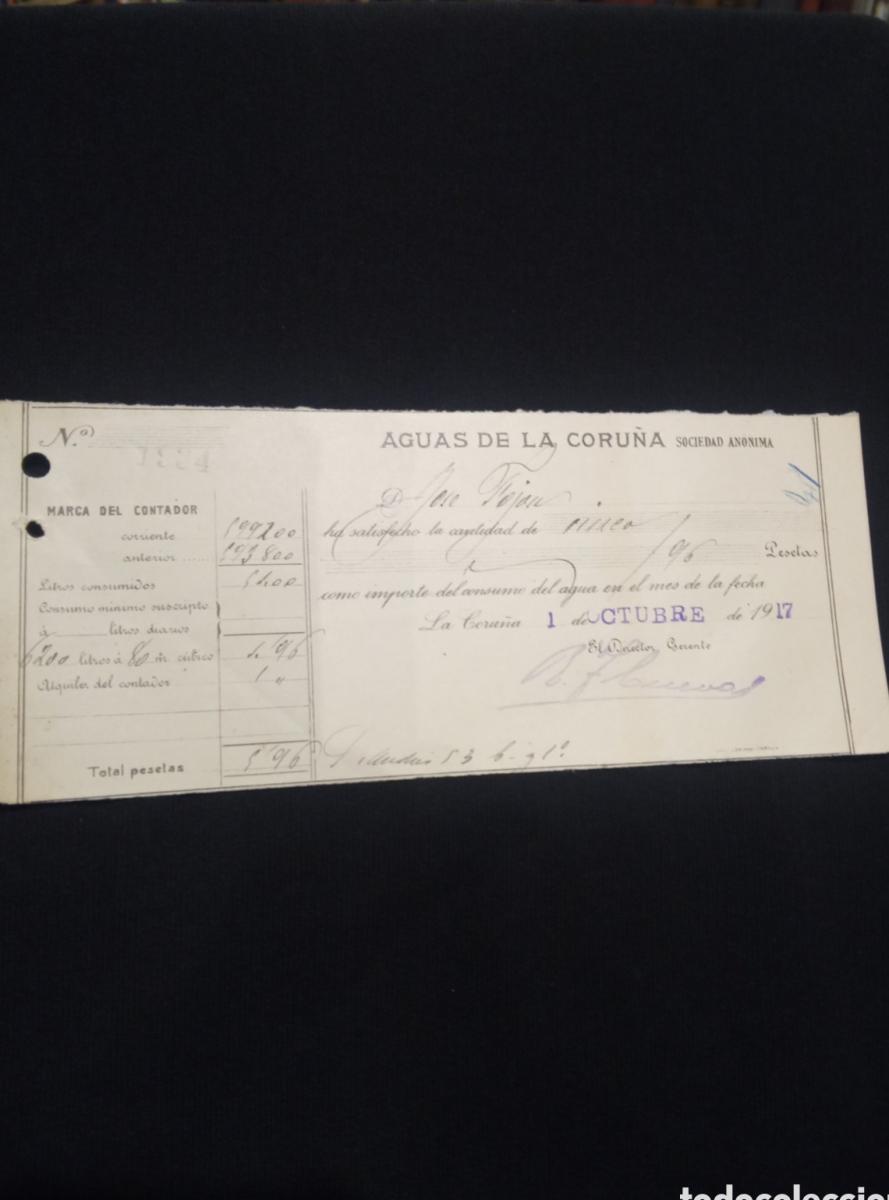 N.º
AGUAS DE LA CORUÑA SOCIEDAD ANONIMA
MARCA DEL CONTADOR
corriente 599200
anterior 593800
Litros consumidos 5400
Consumo mínimo suscripto
á litros diarios
6200 litros á 80 m. cúbico 4'96
Alquiler del contador 1 "
Total pesetas 5'96
D. Jose Fojon
ha satisfecho la cantidad de cinco
/96 Pesetas
como importe del consumo del agua en el mes de la fecha
La Coruña 1 de OCTUBRE de 1917
El Director Gerente
S. Andrés 53 b. y 1º
todocoleccion